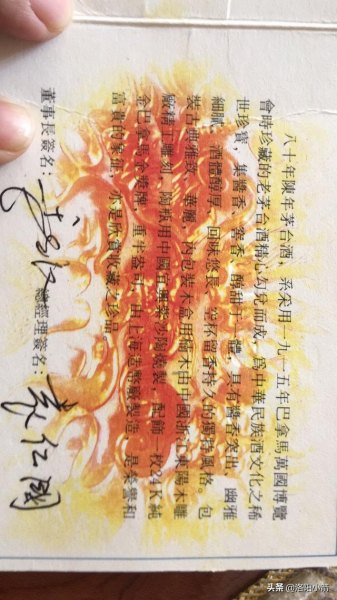 八十年陳年茅台酒，系采用一九一五年巴拿馬萬國博覽
會時珍藏的老茅台酒精心勾兌而成，爲中華民族酒文化之稀
世珍寶，集醬香、窖香、醇甜于一體，具有醬香突出、幽雅
細膩、酒體醇厚、回味悠長、空杯留香持久的獨特風格。包
裝古樸雅致、華麗，内包裝木盒用楠木由中國浙江東陽木雕
廠精工雕刻，陶瓶用中國宜興紫沙陶燒製，配飾一枚24K純
金巴拿馬金獎牌，重半盎司，由上海造幣廠製造，是榮譽和
富貴的象征，亦是欣賞收藏之珍品。
董事長簽名： 總經理簽名：袁仁國
头条 @洛阳小前